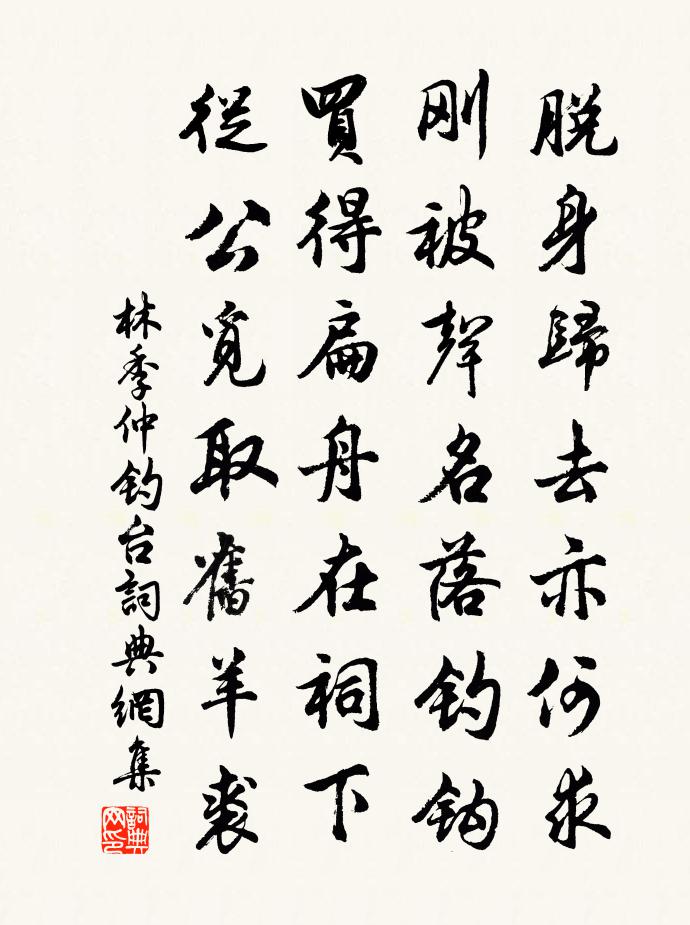 脱身歸去亦何求
刚被聲名落钓钩
買得扁舟在祠下
從公覓取舊羊裘
林季仲钓台詞典網集
詞典网印